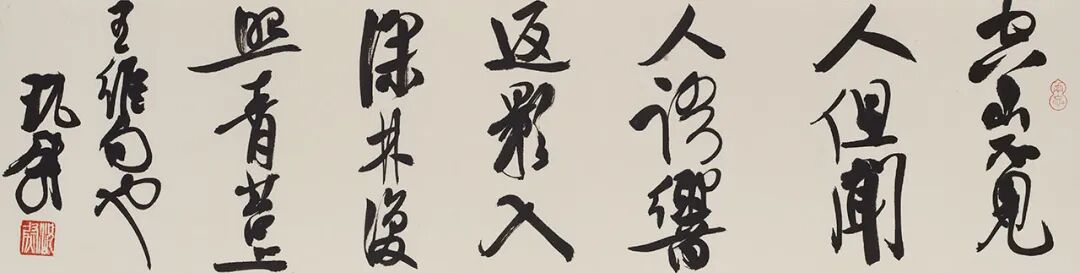 空山不見
人但聞
人語響
返影入
深林復
照青苔上
王維句也